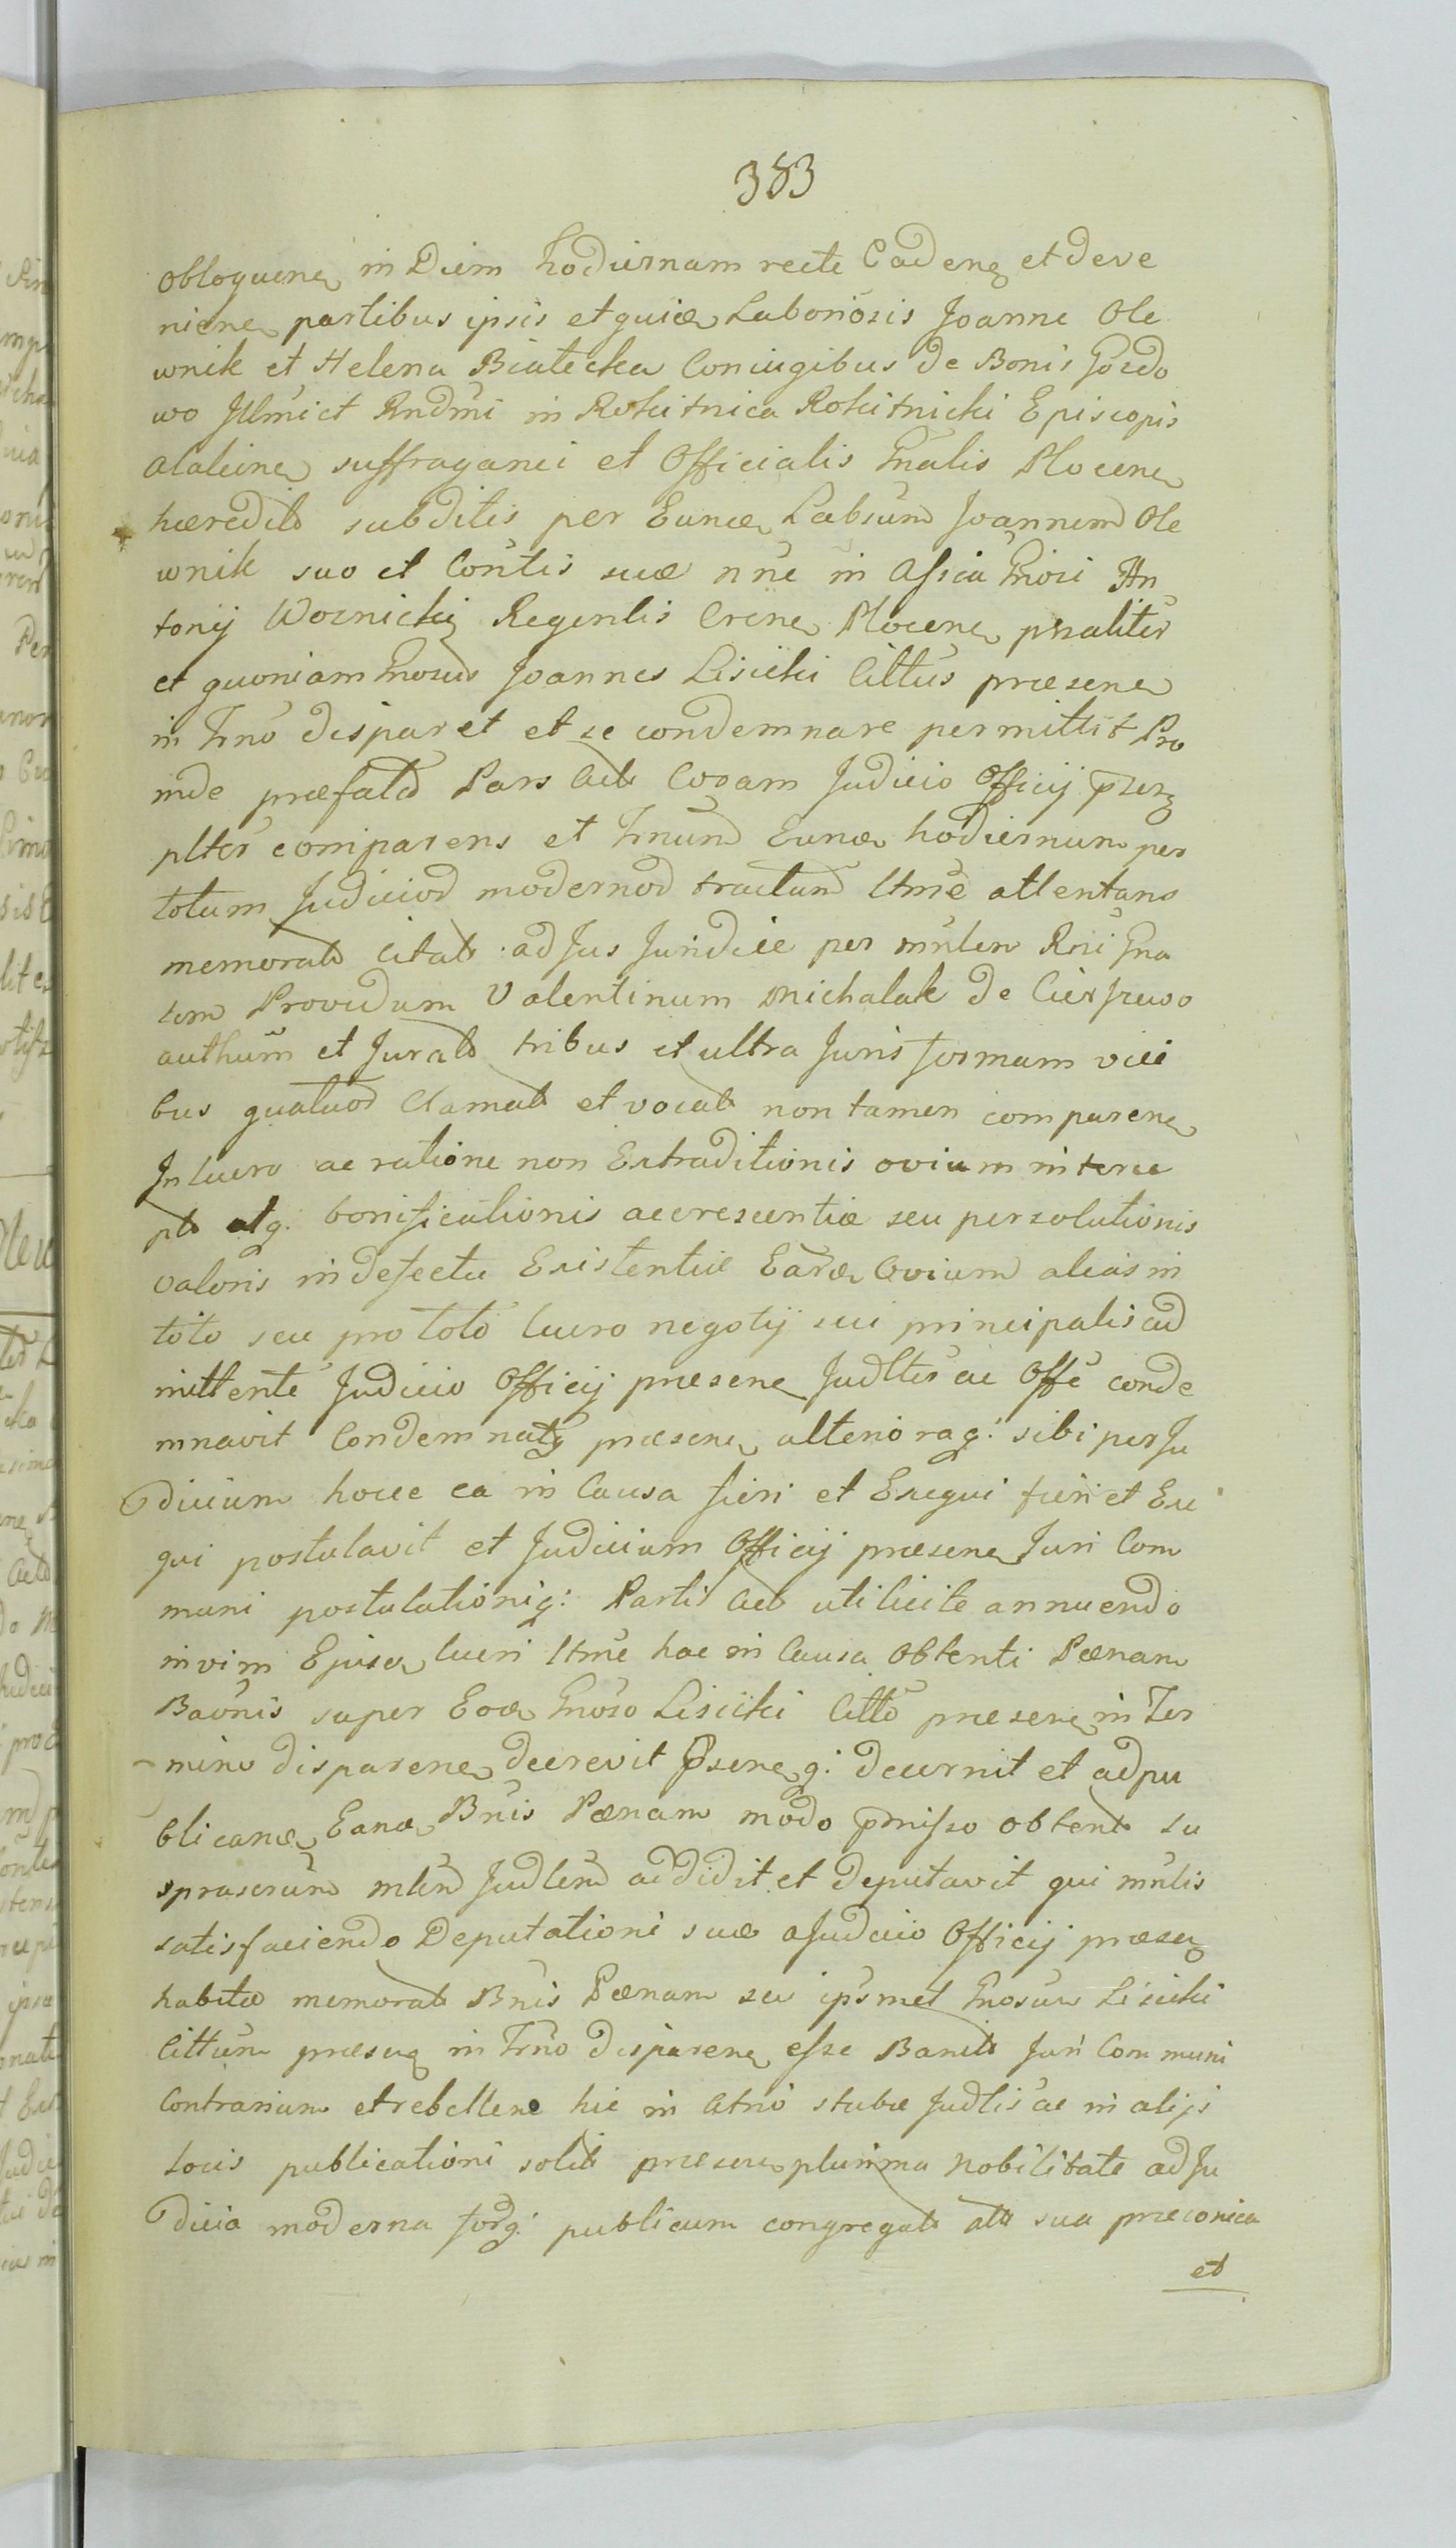 383
obloquene in Diem hodiernam recte Cadene et deve
niene partibus ipsis et quia Laboriosis Joanne Ole
wnik et Helena Białecka Coniugibus de Bonis Gozdo
wo Jllmi et Rndmi in Rokitnica Rokitnicki Episcopis
suffraganei et Officialis Gnalis Plocene
hæredit subditis per Eunæ Labsum Joannem Ole
wnik suo et Contis suæ nne in Assia Gnosi An
tonij Woznicki Regentis Crene Plocene prsaliter
et quoniam Gnosus Joannes Lisicki Cittus præsene
in Trno disparet et se condemnare permittit Pro
inde præfata Pars Act Coram Judicio Officij
plter comparens et Trnum Eunæ hodiernum per
totum Judicior modernor tractum ltme attentans
memorat citat ad Jus Juridice per mnlem Rni Gna
lem Providum Valentinum Michalak de Cierszewo
authum et Jurat tribus et ultra Juris formam vici
bus quatuor Clamat et vocat non tamen comparene
In lucro ac ratione non Extraditionis ovium interce
pt atq: bonificationis accrescentiæ seu persolutionis
valoris in defectu Existentiæ Earæ Ovium alias in
toto seu pro toto lucro negotij sui principalis ad
mittente Judicio Officij præsene Judlter ac Offe conde
mnavit Condemnatq præsene alterioraq: sibi per Ju
dicium hocce ea in Causa fieri et Exequi fieri et Exe
qui postulavit et Judicium Officij præsene Juri Com
muni postulationiq: Partis Act uti licite annuendo
in vim Ejusæ lucri ltme hac in Causa obtenti Pænam
Baonis super Eoæ Gnoso Lisicki Citto præsene in Ter
mino disparene decrevit Psene q: decernit et ad pu
blicanæ Eanæ Bnis Pænam modo pmisso obtent su
prascrum mlem Judlem addidit et deputavit qui mnlis
satisfaciendo Deputationi suæ a Judicio Officij præse
habitæ memorat Bnis Pænam seu ipsmet Gnosum Lisicki
Cittum præse in Trno disparene esse Banit Juri Communi
Contrarium et rebellene hic in Atrio stubæ Judlis ac in alijs
locis publicationi solit præsene plurima Nobilitate ad Ju
dicia moderna forq: publicum congregat att sua præconica
et